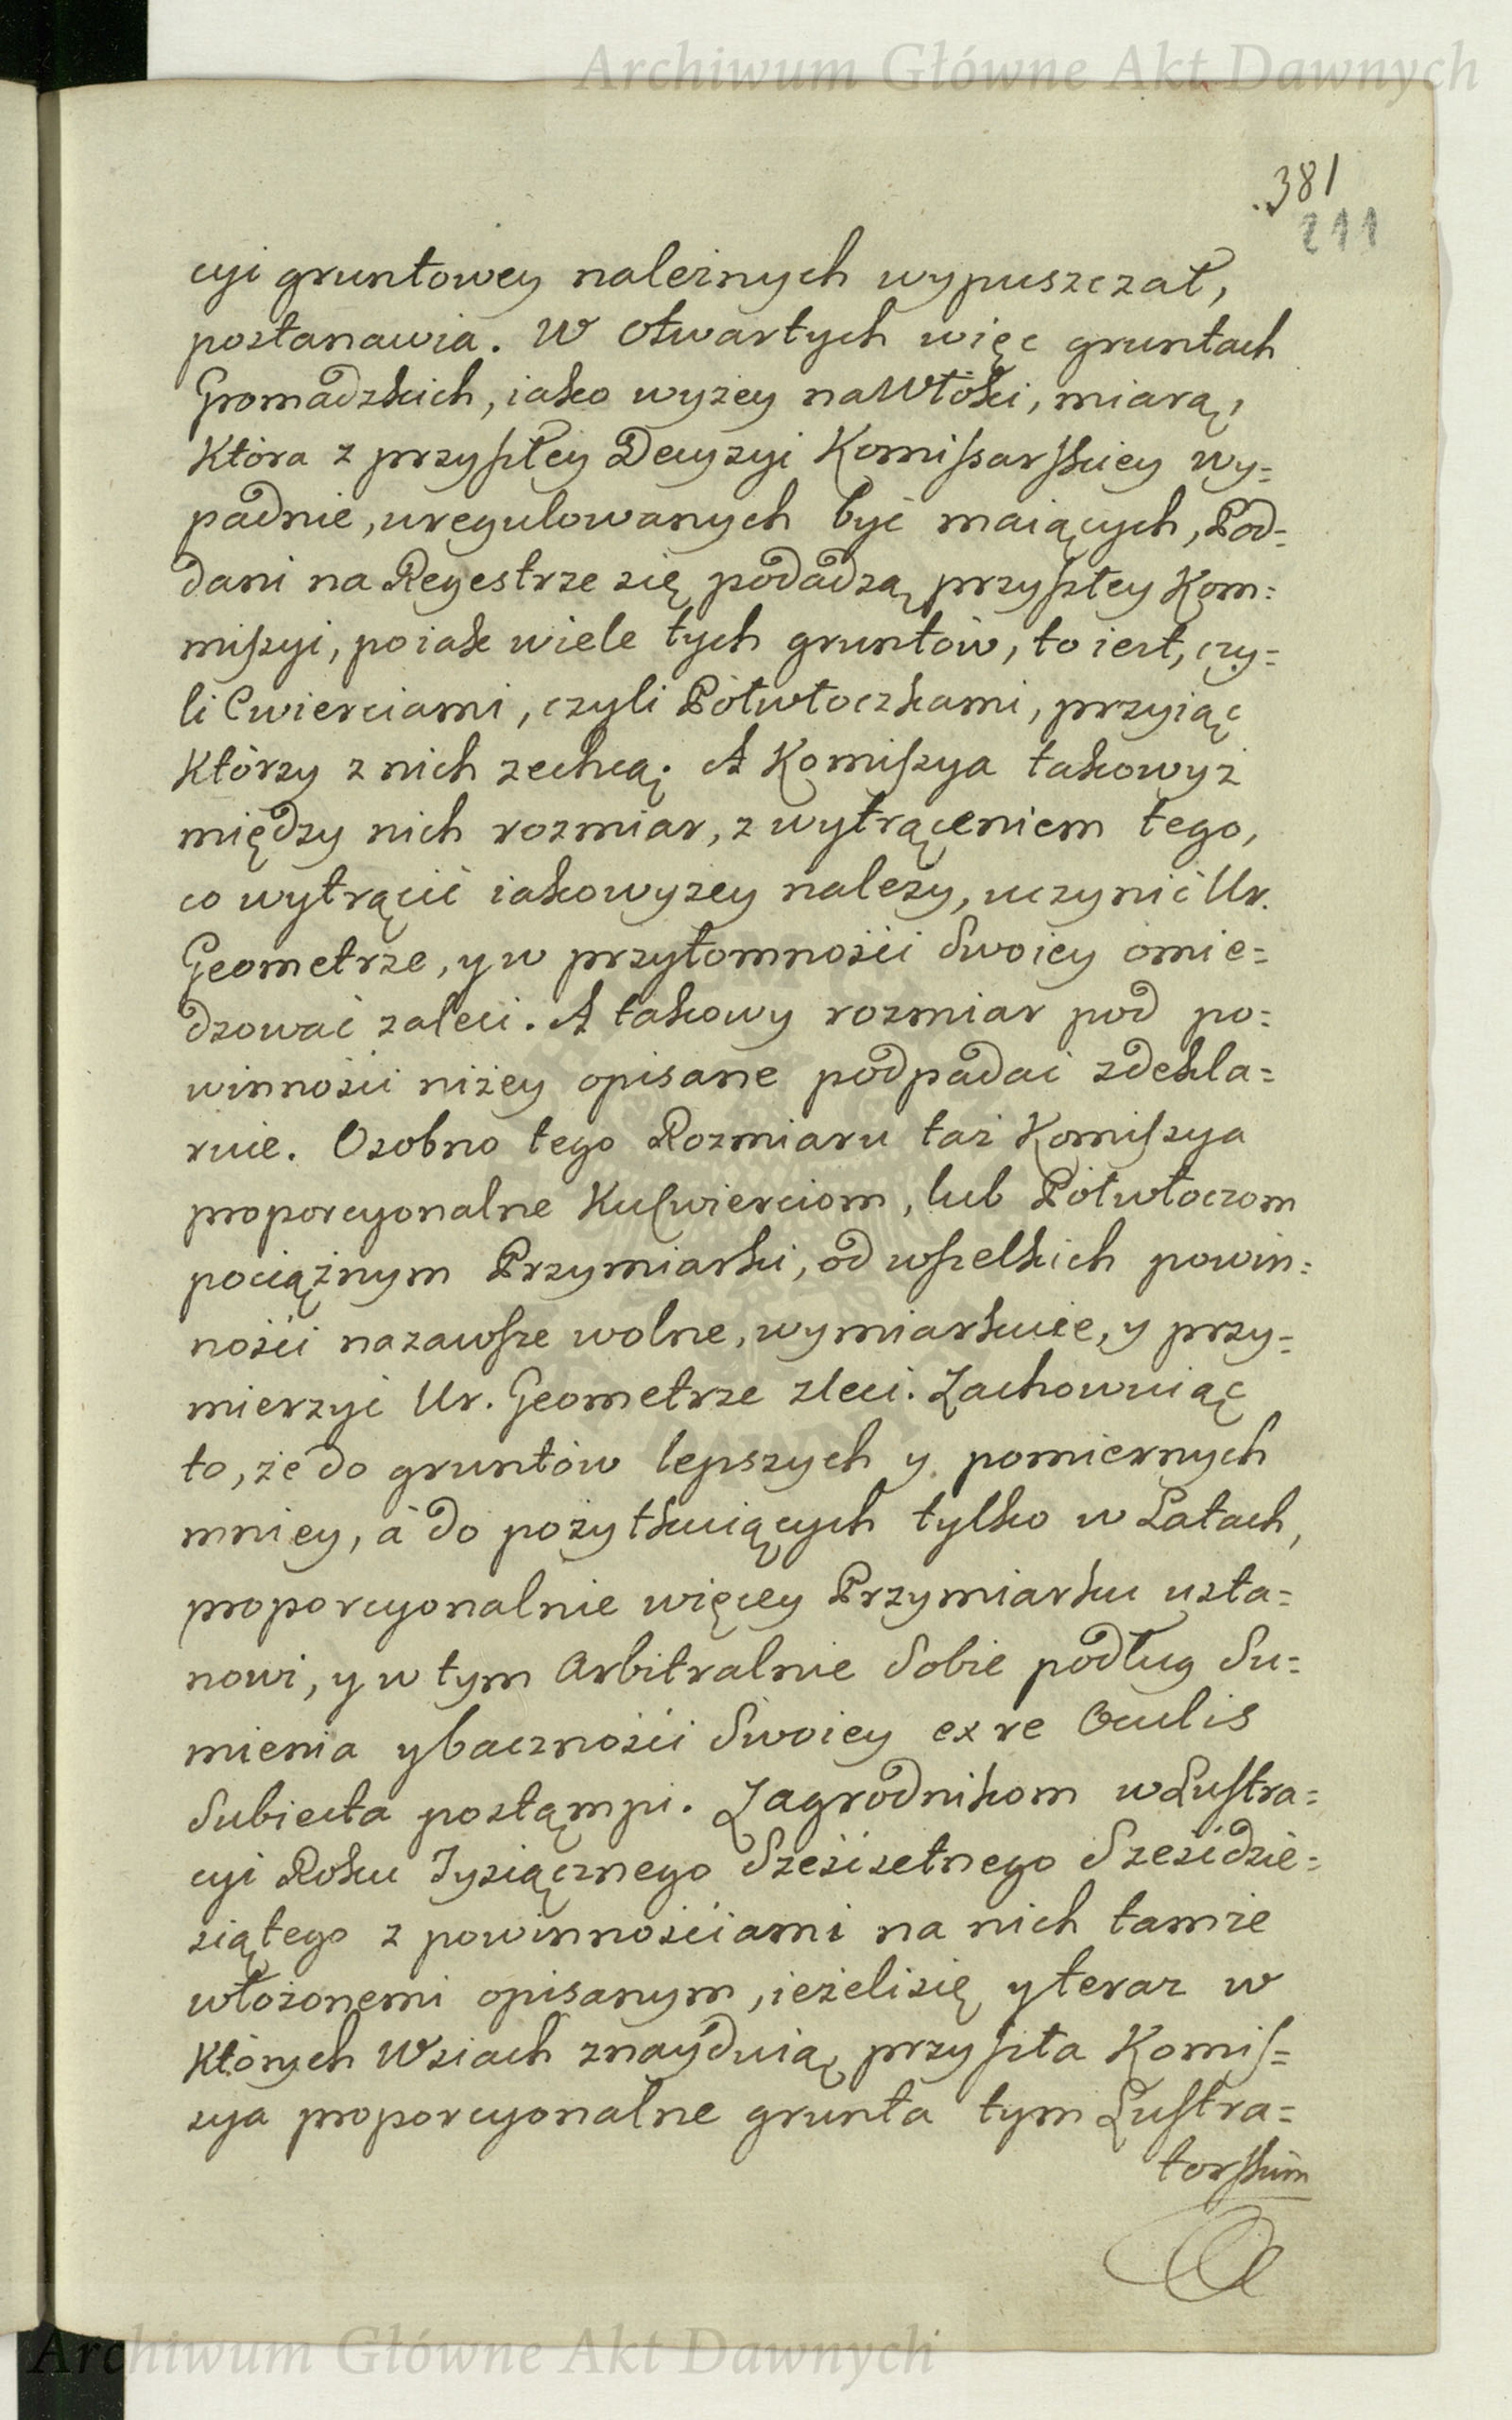 Archiwum Główne Akt Dawnych
381
211
cyi gruntowey należnych wypuszczał,
postanawia. W otwartych więc gruntach
Gromadzkich, iako wyżey na Włóki, miarą,
Która z przyszłey Decyzyi Komissarskiey wy=
padnie, uregulowanych być maiących, Pod=
dani na Regestrze się podadzą przyszłey Kom=
missyi, po iak wiele tych gruntów, to iest, czy=
li Cwierciami, czyli Półwłoczkami, przyiąć
Którzy z nich zechcą. A Komissya takowyż
między nich rozmiar, z wytrąceniem tego,
co wytrącić iako wyżey należy, uczynić Ur.
Geometrze, y w przytomności Swoiey omie=
dzować zaleci. A takowy rozmiar pod po=
winności niżey opisane podpadać zdekla=
ruie. Osobno tego Rozmiaru taż Komissya
proporcyonalne Ku Cwierciom, lub Półwłoczom
pociążnym Przymiarki, od wszelkich powin=
ności na zawsze wolne, wymiarkuie, y przy=
mierzyć Ur. Geometrze zleci. Zachowuiąc
to, że do gruntów lepszych y pomiernych
mniey, á do pożytkuiących tylko w Latach,
proporcyonalnie więcey Przymiarku usta=
nowi, y w tym Arbitralnie Sobie podług Su=
mienia y baczności Swoiey ex re Oculis
Subiecta postąmpi. Zagrodnikom w Lustra=
cyi Roku Tysiącznego Sześćsetnego Sześćdzie=
siątego z powinnościami na nich tamże
włożonemi opisanym, ieżeli się y teraz w
Których Wsiach znayduią, przyszła Komis=
sya proporcyonalne grunta tym Lustra=
torskim
Archiwum Główne Akt Dawnych